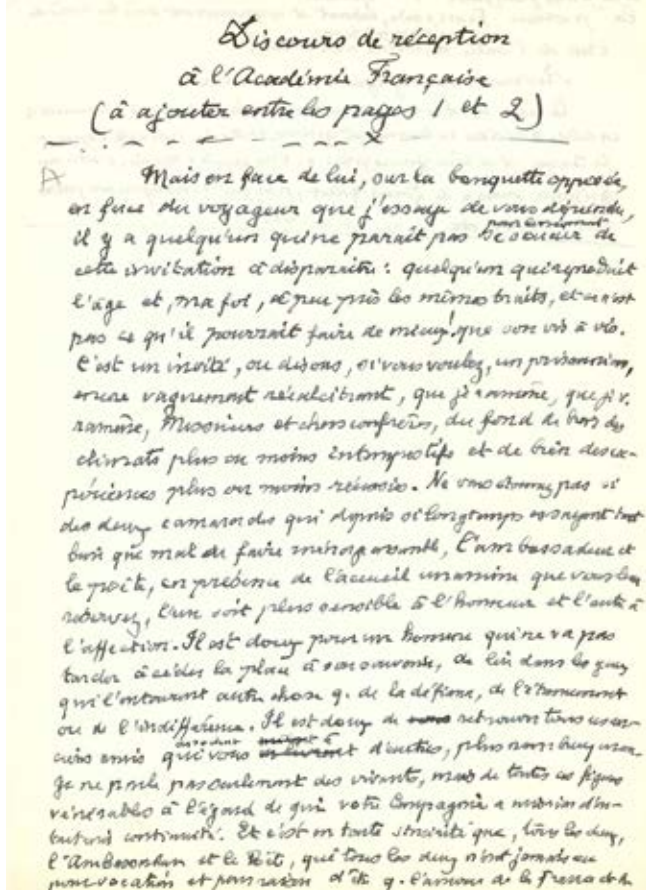 Discours de réception
à l'Académie Française
(à ajouter entre les pages 1 et 2)
A Mais en face de lui, sur la banquette opposée,
en face du voyageur que j'essaye de vous dépeindre,
il y a quelqu'un qui ne parait pas se soucier de
cette invitation à disparaître : quelqu'un qui reproduit
l'âge et, ma foi, à peu près les mêmes traits, et ce n'est
pas ce qu'il pourrait faire de mieux ! que son vis à vis.
C'est un invité, ou disons, si vous voulez, un prisonnier,
encore vaguement récalcitrant, que je ramène, que je v.
ramène, Messieurs et chers confrères, du fond de bien des
climats plus ou moins intempestifs et de bien des ex-
périences plus ou moins réussies. Ne vous étonnez pas si
des deux camarades qui depuis si longtemps essayent tant
bien que mal de faire ménage ensemble, l'ambassadeur et
le poète, en présence de l'accueil unanime que vous leur
réservez, l'un soit plus sensible à l'honneur et l'autre à
l'affection. Il est doux pour un homme qui ne va pas
tarder à céder la place à son souvenir, de lire dans les yeux
qui l'entourent autre chose q. de la défiance, de l'étonnement
ou de l'indifférence. Il est doux de retrouver tous ses an-
ciens amis qui vous d'autres, plus nombreux
Je ne parle pas seulement des vivants, mais de toutes ces figures
vénérables à l'égard de qui votre Compagnie a mission d'un-
continuité. Et c'est en toute sincérité que, tous les deux,
l'Ambassadeur et le Poète, qui tous les deux n'ont jamais eu
pour vocation et pour raison d'être q. l'amour de la France